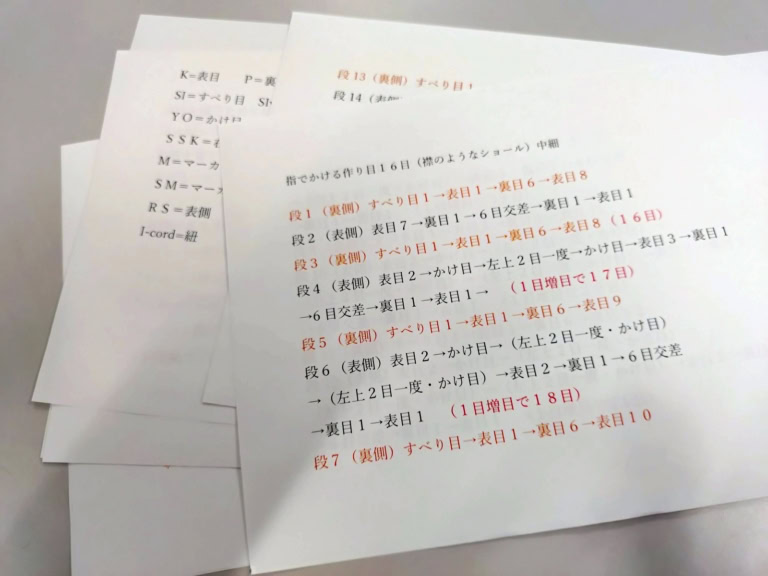 K=表目 P=裏
Sl=すべり目 Sl
YO=かけ目
SSK=
M=マーカ
SM=マーカ
RS=表側
I-cord=紐
段13（裏側）すべり目1
段14（表側
指でかける作り目16目（襟のようなショール）中細
段1（裏側）すべり目1→表目1→裏目6→表目8
段2（表側）表目7→裏目1→6目交差→裏目1→表目1
段3（裏側）すべり目1→表目1→裏目6→表目8（16目）
段4（表側）表目2→かけ目→左上2目一度→かけ目→表目3→裏目1
→6目交差→裏目1→表目1→ （1目増目で17目）
段5（裏側）すべり目1→表目1→裏目6→表目9
段6（表側）表目2→かけ目→（左上2目一度・かけ目）
→（左上2目一度・かけ目）→表目2→裏目1→6目交差
→裏目1→表目1 （1目増目で18目）
段7（裏側）すべり目→表目1→裏目6→表目10